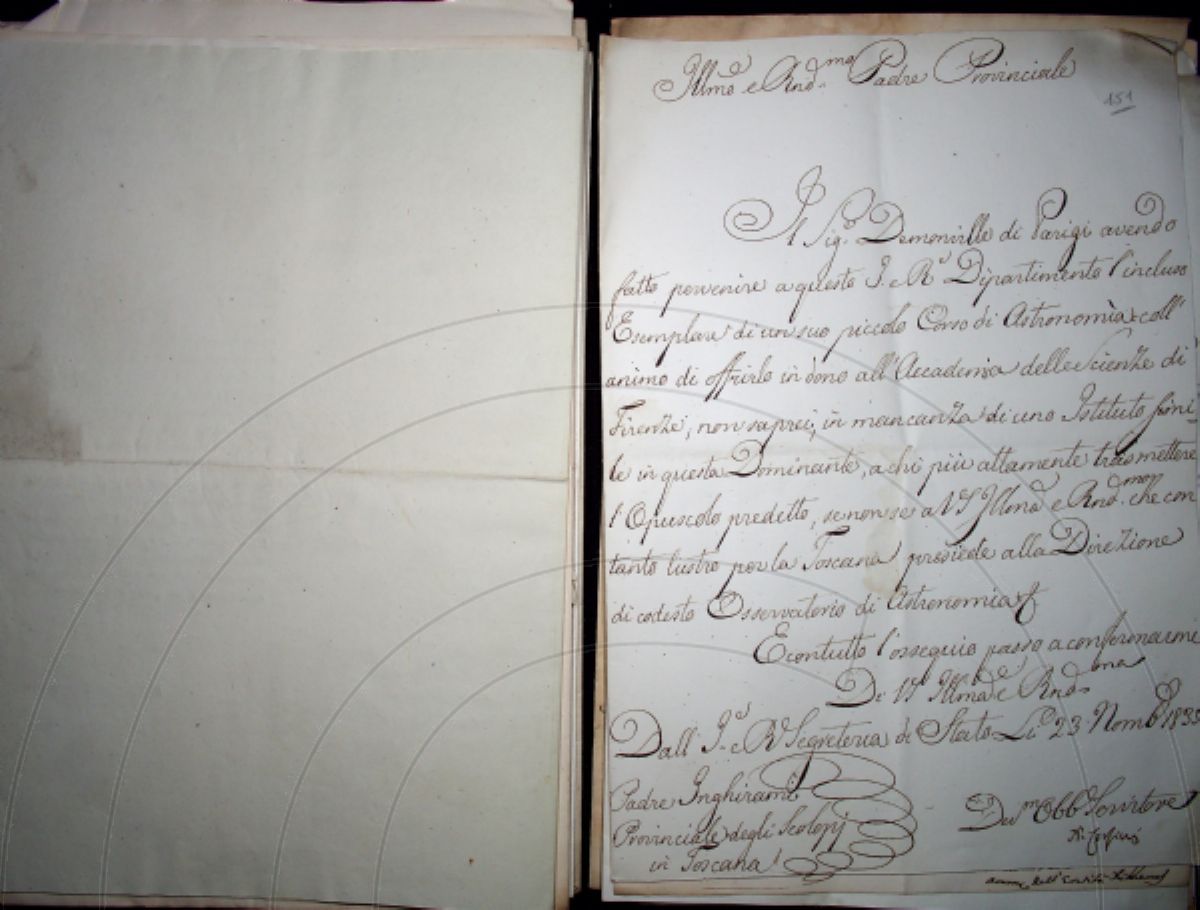 Illmo e Rndmo Padre Provinciale
151
Il Sigr Demonville di Parigi avendo
fatto pervenire a questo I. e R. Dipartimento l'incluso
Esemplare di un suo piccolo Corso di Astronomia coll'
animo di offrirlo in dono all'Accademia delle Scienze di
Firenze, non saprei, in mancanza di uno Istituto simi-
le in questa Dominante, a chi più attamente trasmettere
l'Opuscolo predetto, se non se a VS Illma e Rndma che con
tanto lustro per la Toscana presiede alla Direzione
di codesto Osservatorio di Astronomia
E con tutto l'ossequio passo a confermarmi
Di VS Illma e Rndma
Dall'I. e R. Segreteria di Stato Li 23 Nombre 183
Padre Inghirami
Provinciale degli Scolopj
in Toscana
Devmo Obb Servitore